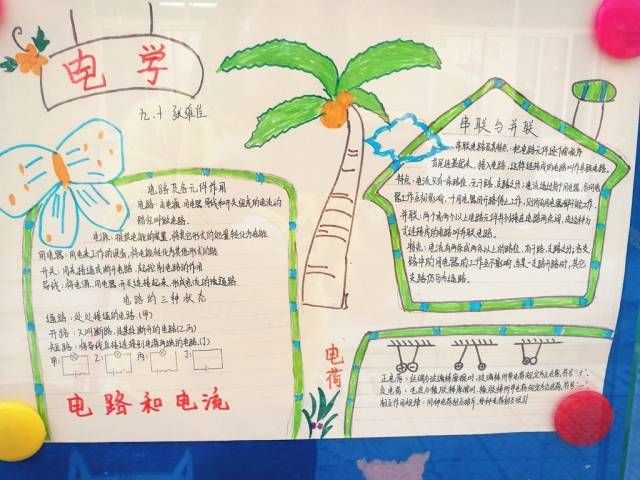 电学
九.十 张雅佳
电路及各元件作用
电路:由电源、用电器、导线和开关组成的电流的
路径叫做电路。
电源:提供电能的装置,将其它形式的能量转化为电能
用电器:用电来工作的设备,将电能转化为其他形式的能
开关:用来接通或断开电路,起控制电路的作用
导线:将电源、用电器、开关连接起来,形成电流的
电路的三种状态
通路:处处接通的电路(甲)
开路:又叫断路,是某处断开的电路(乙丙)
短路:将导线直接连接到电源两端的电路(丁)
甲: 乙: 丙: 丁:
电路和电流
串联与并联
串联电路及其特点:把电路元件逐个顺次
首尾连接起来,接入电路,这样连接成的电路叫作串联电路。
特点:电流只有一条路径,无干路、支路之分;电流通过每个用电器,各用电
器工作互相影响,
并联:两个或两个以上电路元件并列接在电路两点间,由这种方
式连接成的电路叫作并联电路。
特点:电流有两条或两条以上的路径,有干路、支路之分;各支
路中的用电器的工作互不影响,当某一支路开路时,其他
支路仍可为通路。
电荷
正电荷:丝绸与玻璃棒摩擦时,玻璃棒所带电荷规定为正电荷,符号“+”。
负电荷:毛皮与橡胶棒摩擦时,橡胶棒所带电荷规定为负电荷,符号“-”。
相互作用规律:同种电荷相互排斥,异种电荷相互吸引